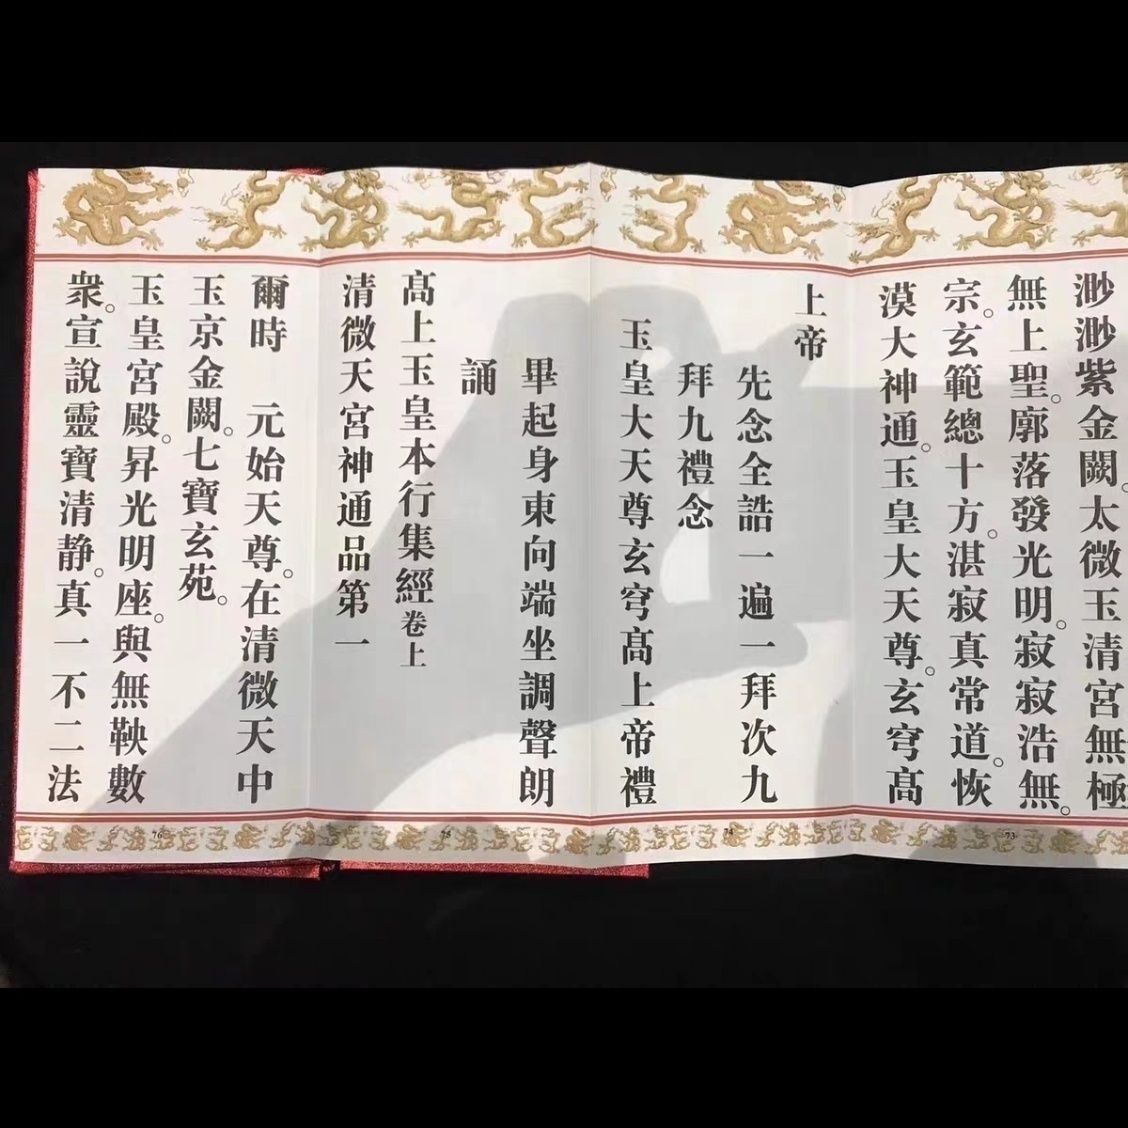 渺渺紫金闕。太微玉清宮無極
無上聖。廓落發光明。寂寂浩無。
宗。玄範總十方。湛寂真常道。恢
漠大神通。玉皇大天尊。玄穹高
上帝
先念全誥一遍一拜次九
拜九禮念
玉皇大天尊玄穹高上帝禮
畢起身東向端坐調聲朗
誦
高上玉皇本行集經卷上
清微天宮神通品第一
爾時　元始天尊。在清微天中
玉京金闕。七寶玄苑。
玉皇宮殿。昇光明座。與無鞅數
衆。宣說靈寶清静。真一不二法
73
74
75
76